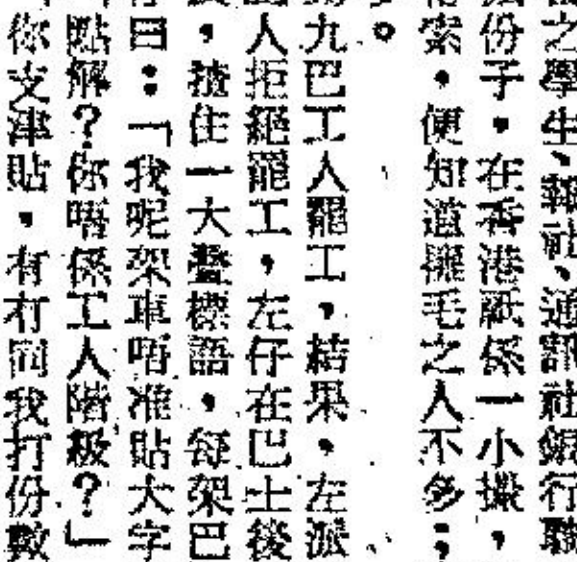 之學生、報社、通訊社銀行聯
份子，在香港祇係一小撮，
索，便知道擺毛之人不多；
。
九巴工人罷工，結果，左派
人拒絕罷工，左仔在巴士後
，揸住一大疊標語，每架巴
曰：「我呢架車唔准貼大字
點解？你唔係工人階級？」
你支津貼，有冇同我打份數